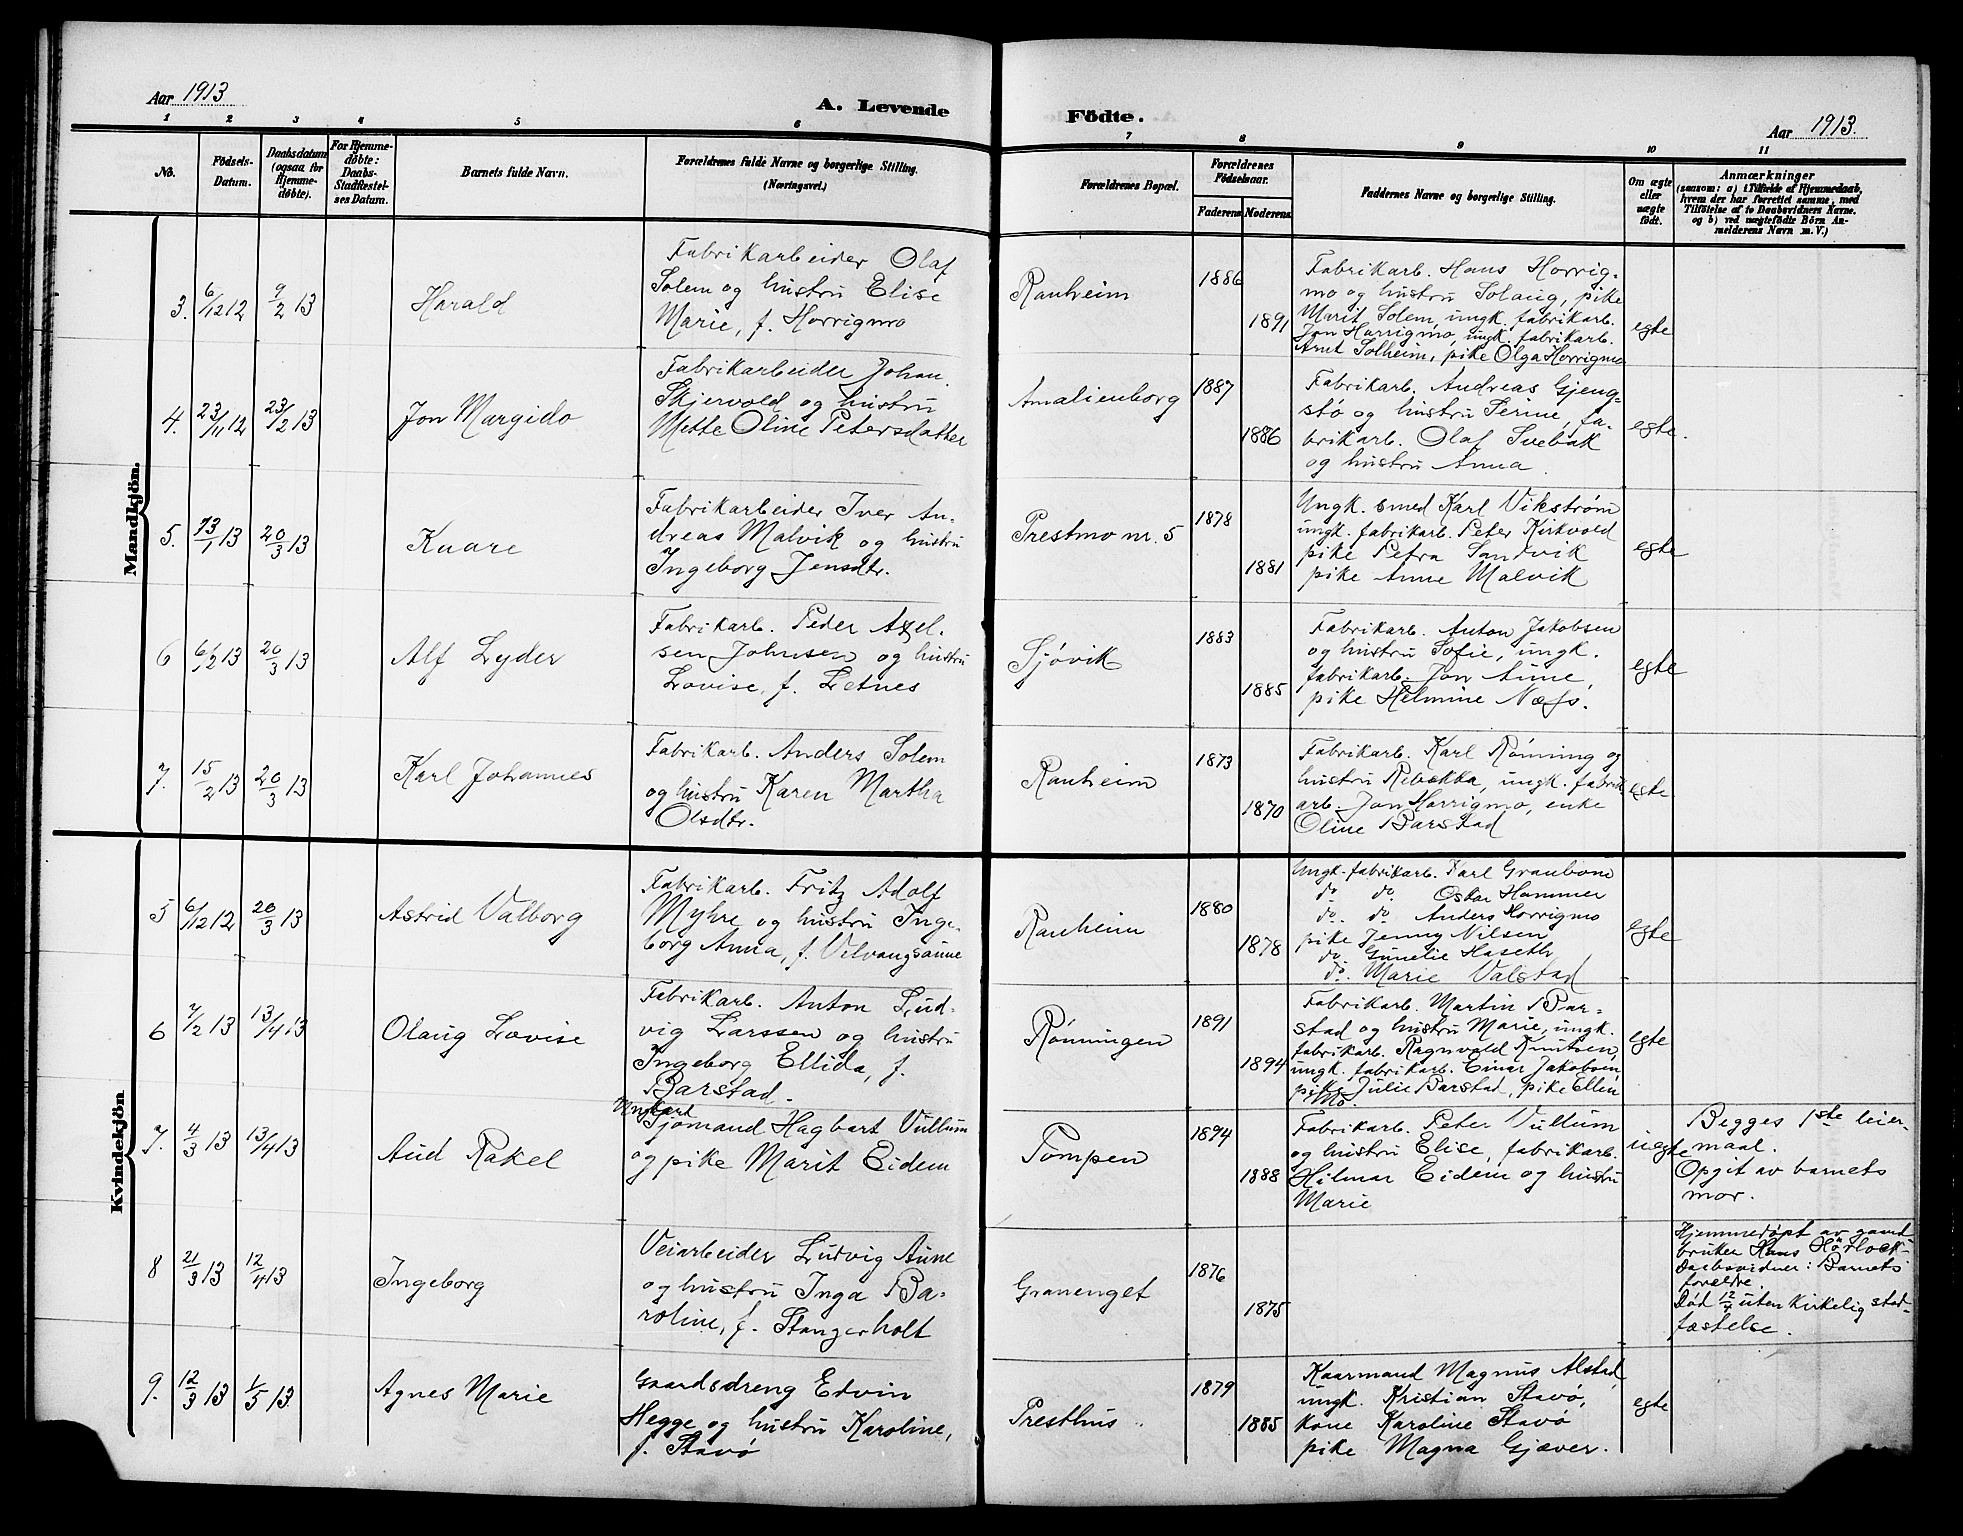 Aar 1913
A. Levende
Födte.
Aar 1913.
1 2 3 4 5 6 7 8 9 10 11
No.
Födsels-
Datum.
Daabsdatum
(ogsaa for
Hjemme-
døbte).
For Hjemme-
døbte:
Daabs-
Stadfæstel-
ses Datum.
Barnets fulde Navn.
Forældrenes fulde Navne og borgerlige Stilling.
(Næringsvei.)
Forældrenes Bopæl.
Forældrenes
Födselsaar.
Faderens Moderens
Faddernes Navne og borgerlige Stilling.
Om ægte
eller
uægte
født.
Anmærkninger
(saasom: a) i Tilfælde af Hjemmedaab,
hvem der har forrettet samme, med
Tilföielse af to Daabsvidners Navne.
og b) ved uægtefödte Börn An-
melderens Navn m. V.)
Mandkjön.
3. 6/12 12 9/2 13 Harald
Fabrikarbeider Olaf
Solem og hustru Elise
Marie, f. Horrigmo
Ranheim
1886
1891
Fabrikarb. Hans Horrig-
mo og hustru Solaug, pike
Marit Solem, ungk. fabrikarb.
Jon Horrigmo, ungk. fabrikarb.
Arnt Solheim, pike Olga Horrigmo
egte
4. 23/11 12 23/2 13 Jon Margido
Fabrikarbeider Johan
Skjervold og hustru
Mette Oline Petersdatter
Amalienborg
1887
1886
Fabrikarb. Andreas Gjeng-
stø og hustru Serine, fa-
brikarb. Olaf Svebak
og hustru Anna.
egte.
5. 13/1 13 20/3 13 Knare
Fabrikarbeider Iver An-
dreas Malvik og hustru
Ingeborg Jensdtr.
Prestmo nr. 5
1878
1881
Ungk. smed Karl Vikstrøm
ungk. fabrikarb. Peter Kirkvold
pike Petra Sandvik
pike Anne Malvik
egte
6 6/2 13 20/3 13 Alf Lyder
Fabrikarb. Peder Axel-
sen Johnsen og hustru
Lovise, f. Letnes
Sjøvik
1883
1885
Fabrikarb. Anton Jakobsen
og hustru Sofie, ungk.
fabrikarb. Jon Aune,
pike Helmine Næss.
egte
7. 15/2 13 20/3 13 Karl Johannes
Fabrikarb. Anders Solem
og hustru Karen Martha
Olsdtr.
Ranheim
1873
1870
Fabrikarb. Karl Rønning og
hustru Rebekka, ungk. fabrik-
arb. Jon Horrigmo, enke
Oline Barstad
egte
Kvindekjön
5 6/12 12 20/3 13 Astrid Valborg
Fabrikarb. Fritz Adolf
Myhre og hustru Inge-
borg Anna, f. Velvangsaune
Ranheim
1880
1878
Ungk. fabrikarb. Karl Graubone
do do Oskar Hammer
do. do. Anders Horrigmo
pike Jenny Nilsen
do Gunelie Haseth
do. Marie Valstad
egte
6 7/2 13 13/4 13 Olaug Lovise
Fabrikarb. Anton Lud-
vig Larssen og hustru
Ingeborg Ellida, f.
Barstad.
Rønningen
1891
1894
Fabrikarb. Martin Bar-
stad og hustru Marie, ungk.
fabrikarb. Ragnvald Knutsen,
ungk. fabrikarb. Einar Jakobsen,
pike Julie Barstad, pike Ellen
Mo.
egte
7. 4/3 13 13/4 13 Aud Rakel
Ungkard
Sjømand Hagbart Vullum
og pike Marit Eidem
Pompen
1894
1888
Fabrikarb. Peter Vullum
og hustru Elise, fabrikarb.
Hilmar Eidem og hustru
Marie
uegte
Begges 1ste leier-
maal.
Opgit av barnets
mor.
8 21/3 13 12/4 13 Ingeborg
Veiarbeider Ludvig Aune
og hustru Inga Ba-
roline, f. Stangerholt
Granenget
1876
1875
Hjemmedøpt av gaard-
bruker Hans Hørlock-
Daabsvidner: Barnets
forældre.
Død 12/4 uten kirkelig stad-
fæstelse.
9. 12/3 13 1/5 13. Agnes Marie
Gaardsdreng Edvin
Hegge og hustru Karoline,
f. Stavø
Presthus.
1879
1885
Kaarmand Magnus Alstad,
ungk. Kristian Stavø,
kone Karoline Stavø
pike Magna Gjæver.
egte